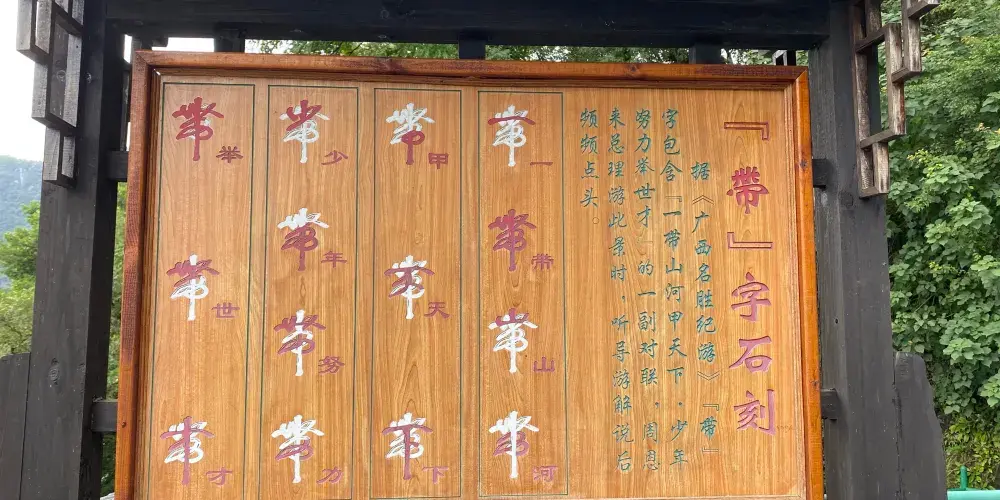 『帶』字石刻
据《广西名胜纪游》『带』
字包含『一带山河甲天下，少年
努力举世才』的一副对联，周恩
来总理游此景时，听导游解说后
频频点头。
一带山河
甲天下
少年努力
举世才